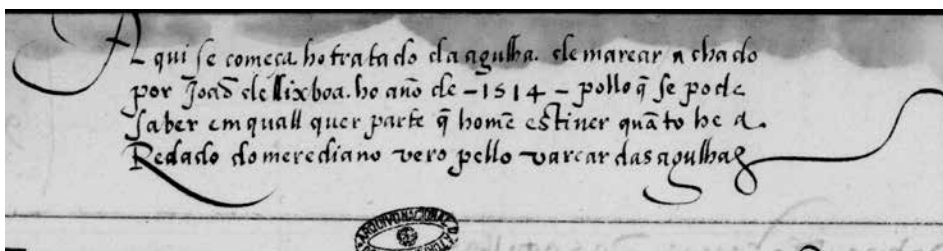 Aqui se começa ho tratado da agulha de marear achado
por Joaõ de lixboa ho año de -1514- pollo q̃ se pode
saber em quall quer parte q̃ home estiver quãto he a
Redado do merediano vero pello varear das agulhas
ARQUIVO NACIONAL DA TORRE